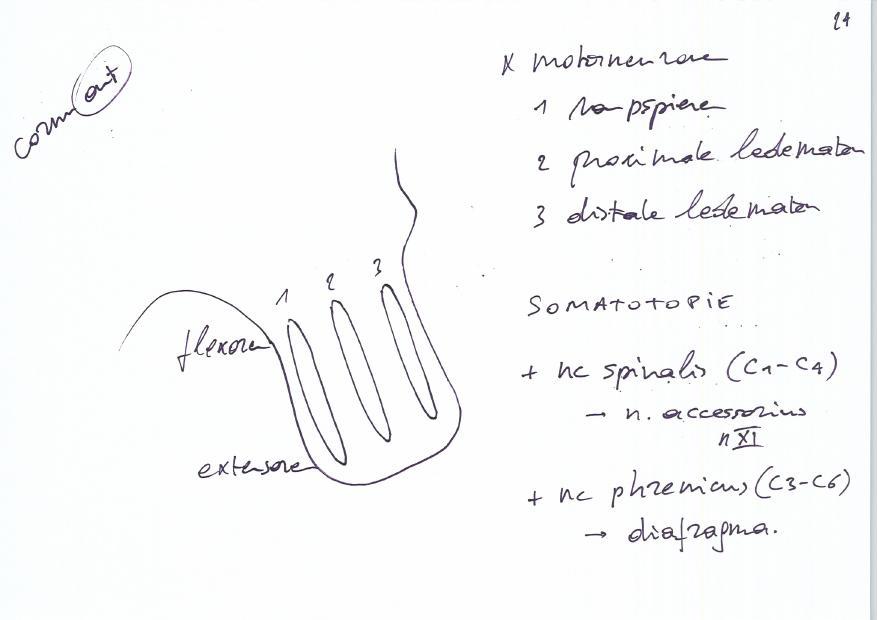 24
cornu ant
x motorneuronen
1 rompspieren
2 proximale ledematen
3 distale ledematen
1 2 3
SOMATOTOPIE
flexoren
+ nc spinalis (C1-C4)
→ n. accessorius
n XI
extensoren
+ nc phrenicus (C3-C6)
→ diafragma.